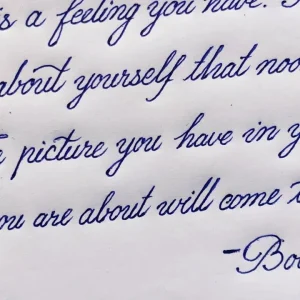 is a feeling you have.
about yourself that
picture you have in
you are about will come
-Bo